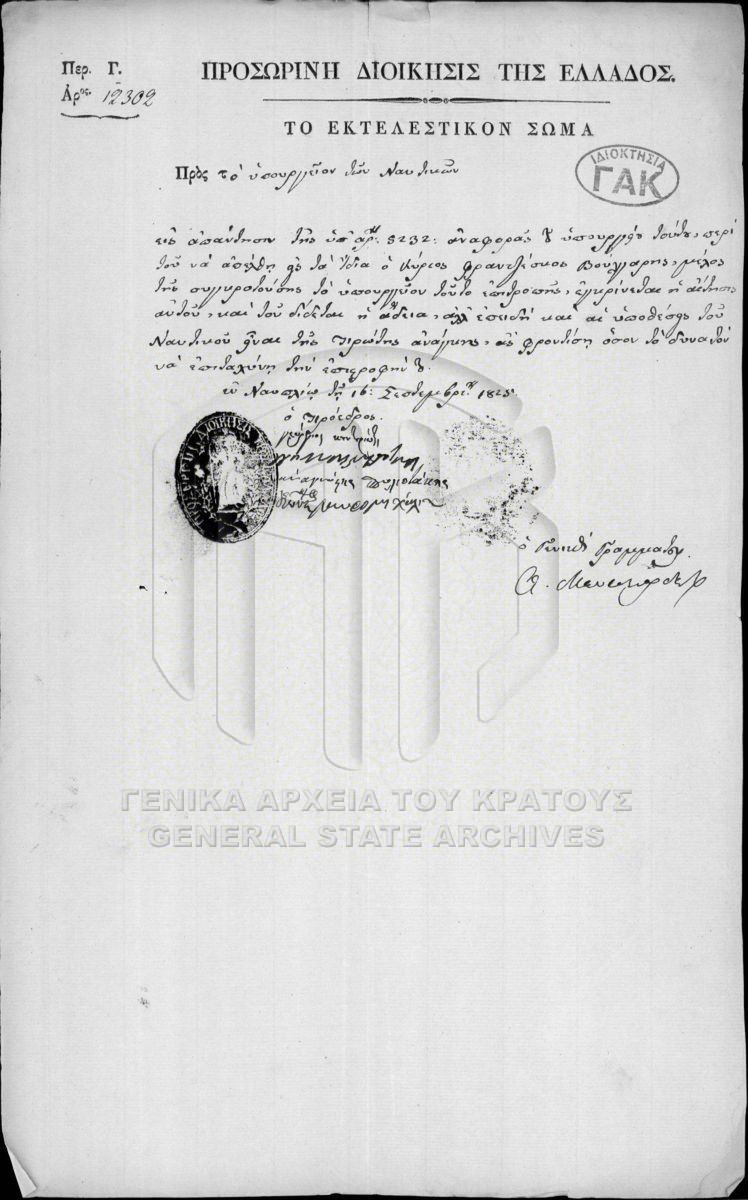 Περ. Γ.
Αρος. 12302
ΠΡΟΣΩΡΙΝΗ ΔΙΟΙΚΗΣΙΣ ΤΗΣ ΕΛΛΑΔΟΣ.
ΤΟ ΕΚΤΕΛΕΣΤΙΚΟΝ ΣΩΜΑ
ΙΔΙΟΚΤΗΣΙΑ
ΓΑΚ
Πρὸς τὸ ὑπουργεῖον τῶν Ναυτικῶν
εἰς ἀπάντησιν τῆς ὑπ' ἀρ. 5232: ἀναφορᾶς τοῦ ὑπουργείου τούτου, περὶ
τοῦ νὰ ἀπέλθῃ εἰς τὰ ἴδια ὁ Κύριος Φραντζέσκος Βούλγαρης, μέλος
τῆς συγκροτούσης τὸ ὑπουργεῖον τοῦτο ἐπιτροπῆς, ἐγκρίνεται ἡ αἴτησις
αὐτοῦ, καὶ τοῦ δίδεται ἡ ἄδεια, ἀλλ' ἐπειδὴ καὶ αἱ ὑποθέσεις τοῦ
Ναυτικοῦ εἶναι τῆς πρώτης ἀνάγκης, ἂς φροντίσῃ ὅσον τὸ δυνατὸν
νὰ ἐπιταχύνῃ τὴν ἐπιστροφήν του.
ἐν Ναυπλίῳ τῇ 16: Σεπτεμβρίου 1825
ὁ Πρόεδρος.
ὁ Γενικὸς Γραμματεύς.
Α. Μαυροκορδάτος
ΓΕΝΙΚΑ ΑΡΧΕΙΑ ΤΟΥ ΚΡΑΤΟΥΣ
GENERAL STATE ARCHIVES